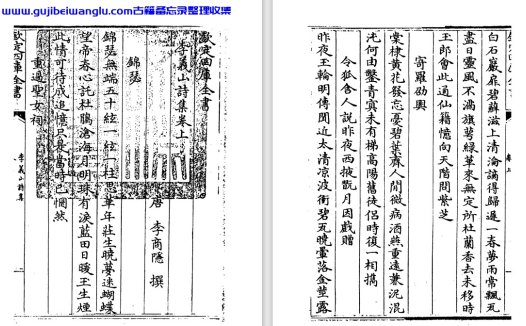 www.gujibeiwanglu.com古籍备忘录整理收集
欽定四庫全書
李義山詩集卷上
唐 李商隱 撰
錦瑟
錦瑟無端五十絃一絃一柱思華年莊生曉夢迷蝴蝶
望帝春心託杜鵑滄海月明珠有淚藍田日暖玉生煙
此情可待成追憶只是當時已惘然
重過聖女祠
欽定四庫全書
李義山詩集
白石巖扉碧蘚滋上清淪謫得歸遲一春夢雨常飄瓦
盡日靈風不滿旗萼綠華來無定所杜蘭香去未移時
玉郎會此通仙籍憶向天階問紫芝
寄羅劭興
棠棣黃花發忘憂碧葉齊人閒微病酒燕重遠兼泥混
沌何由鑿青冥未有梯高陽舊徒侶時復一相攜
令狐舍人說昨夜西掖翫月因戲贈
昨夜玉輪明傳聞近太清涼波衝碧瓦曉暈落金莖露